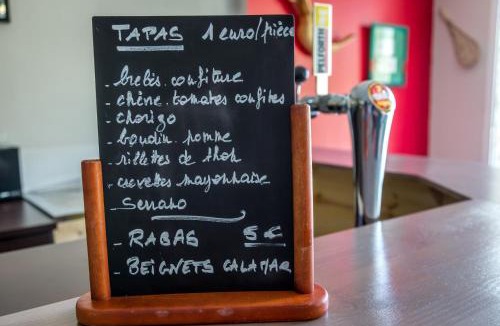 TAPAS 1 euro/pièce
- brebis. confiture
- chèvre. tomates confites
- chorizo
- boudin. pomme
- rillettes de thon
- crevettes mayonnaise
- Serrano
- RABAS 5€
- BEIGNETS CALAMAR
PELFORTH